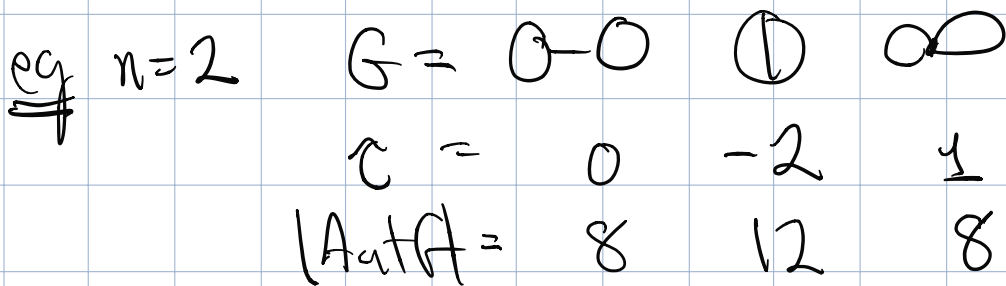 eg n=2 G=
τ = 0 -2 1
|Aut G| = 8 12 8